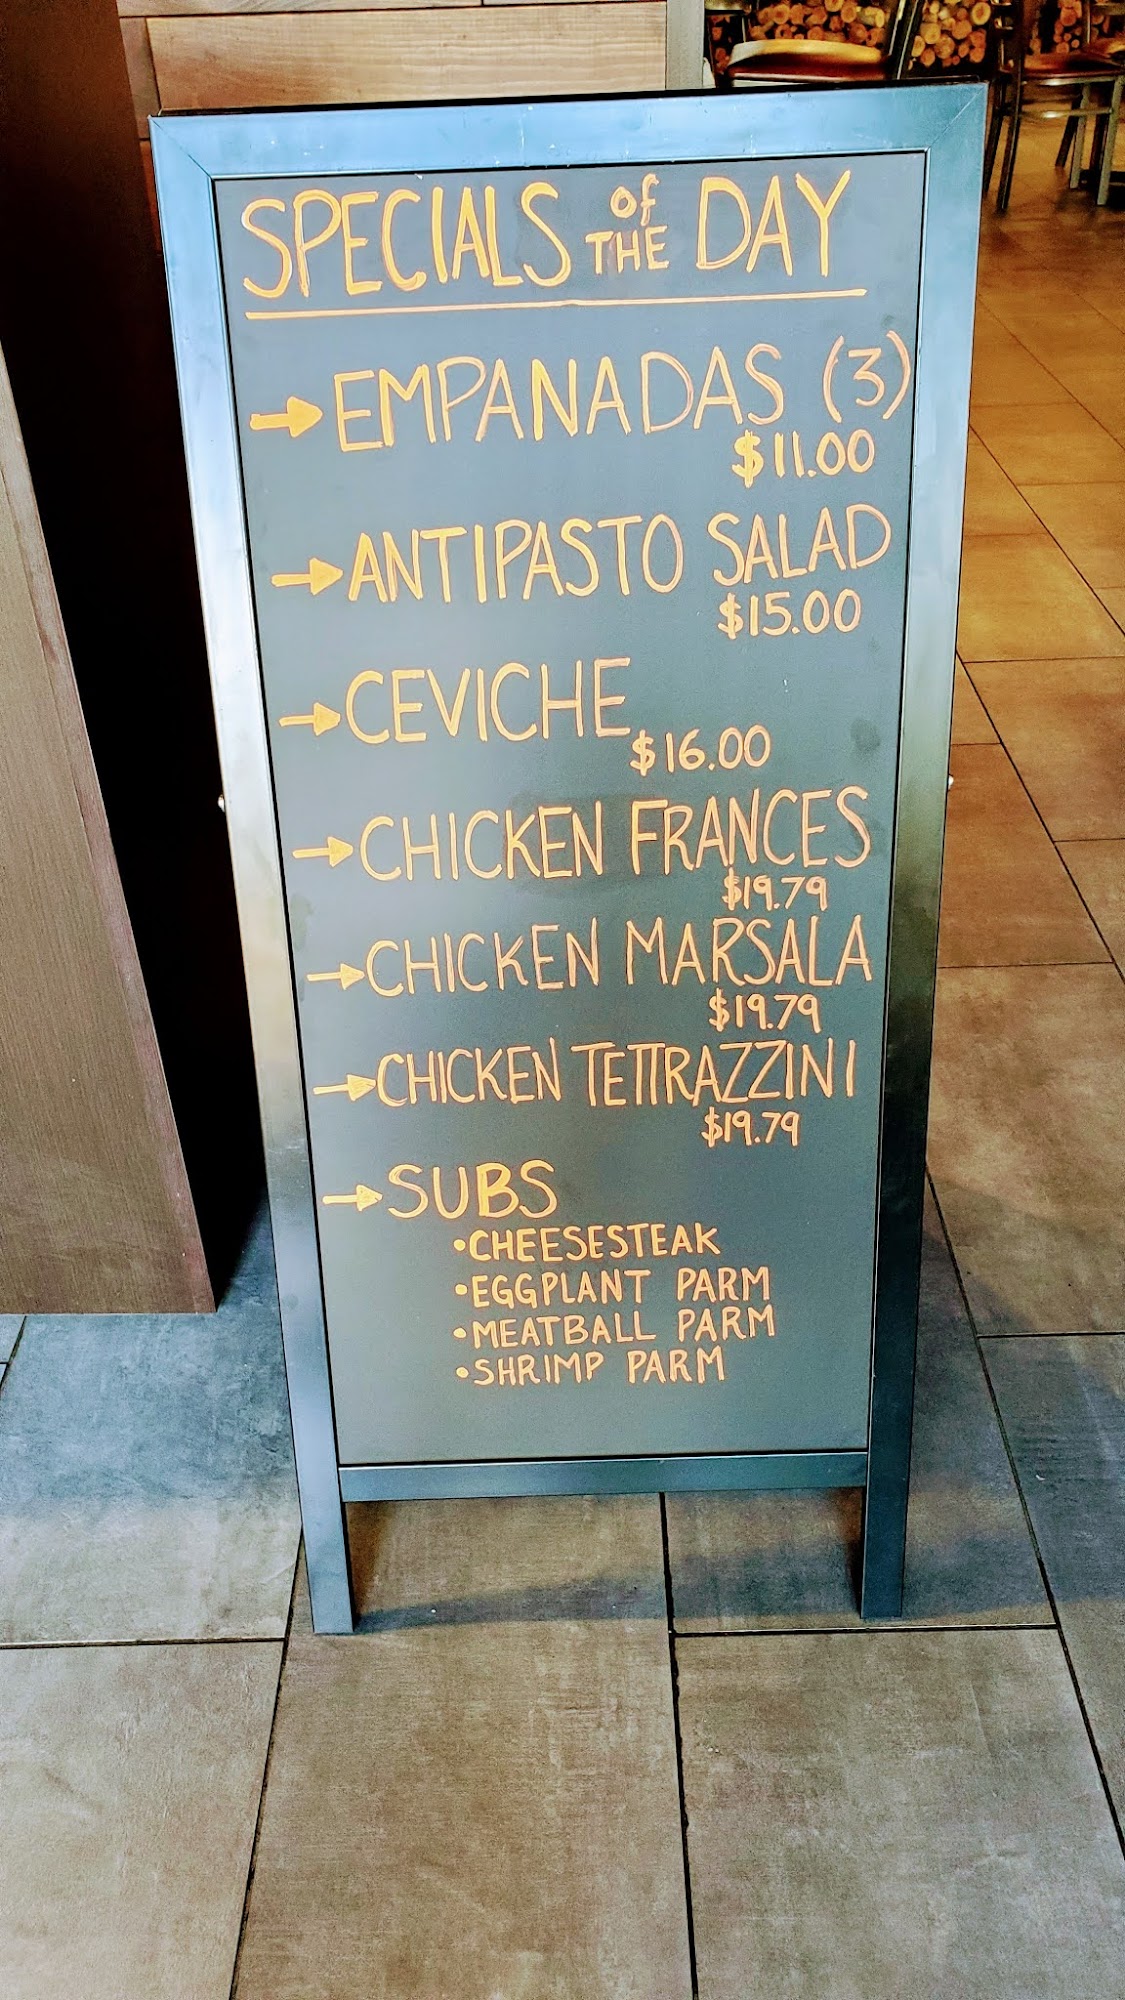 SPECIALS of THE DAY
EMPANADAS (3)
$11.00
ANTIPASTO SALAD
$15.00
CEVICHE
$16.00
CHICKEN FRANCES
$19.79
CHICKEN MARSALA
$19.79
CHICKEN TETTRAZZINI
$19.79
SUBS
•CHEESESTEAK
•EGGPLANT PARM
•MEATBALL PARM
•SHRIMP PARM